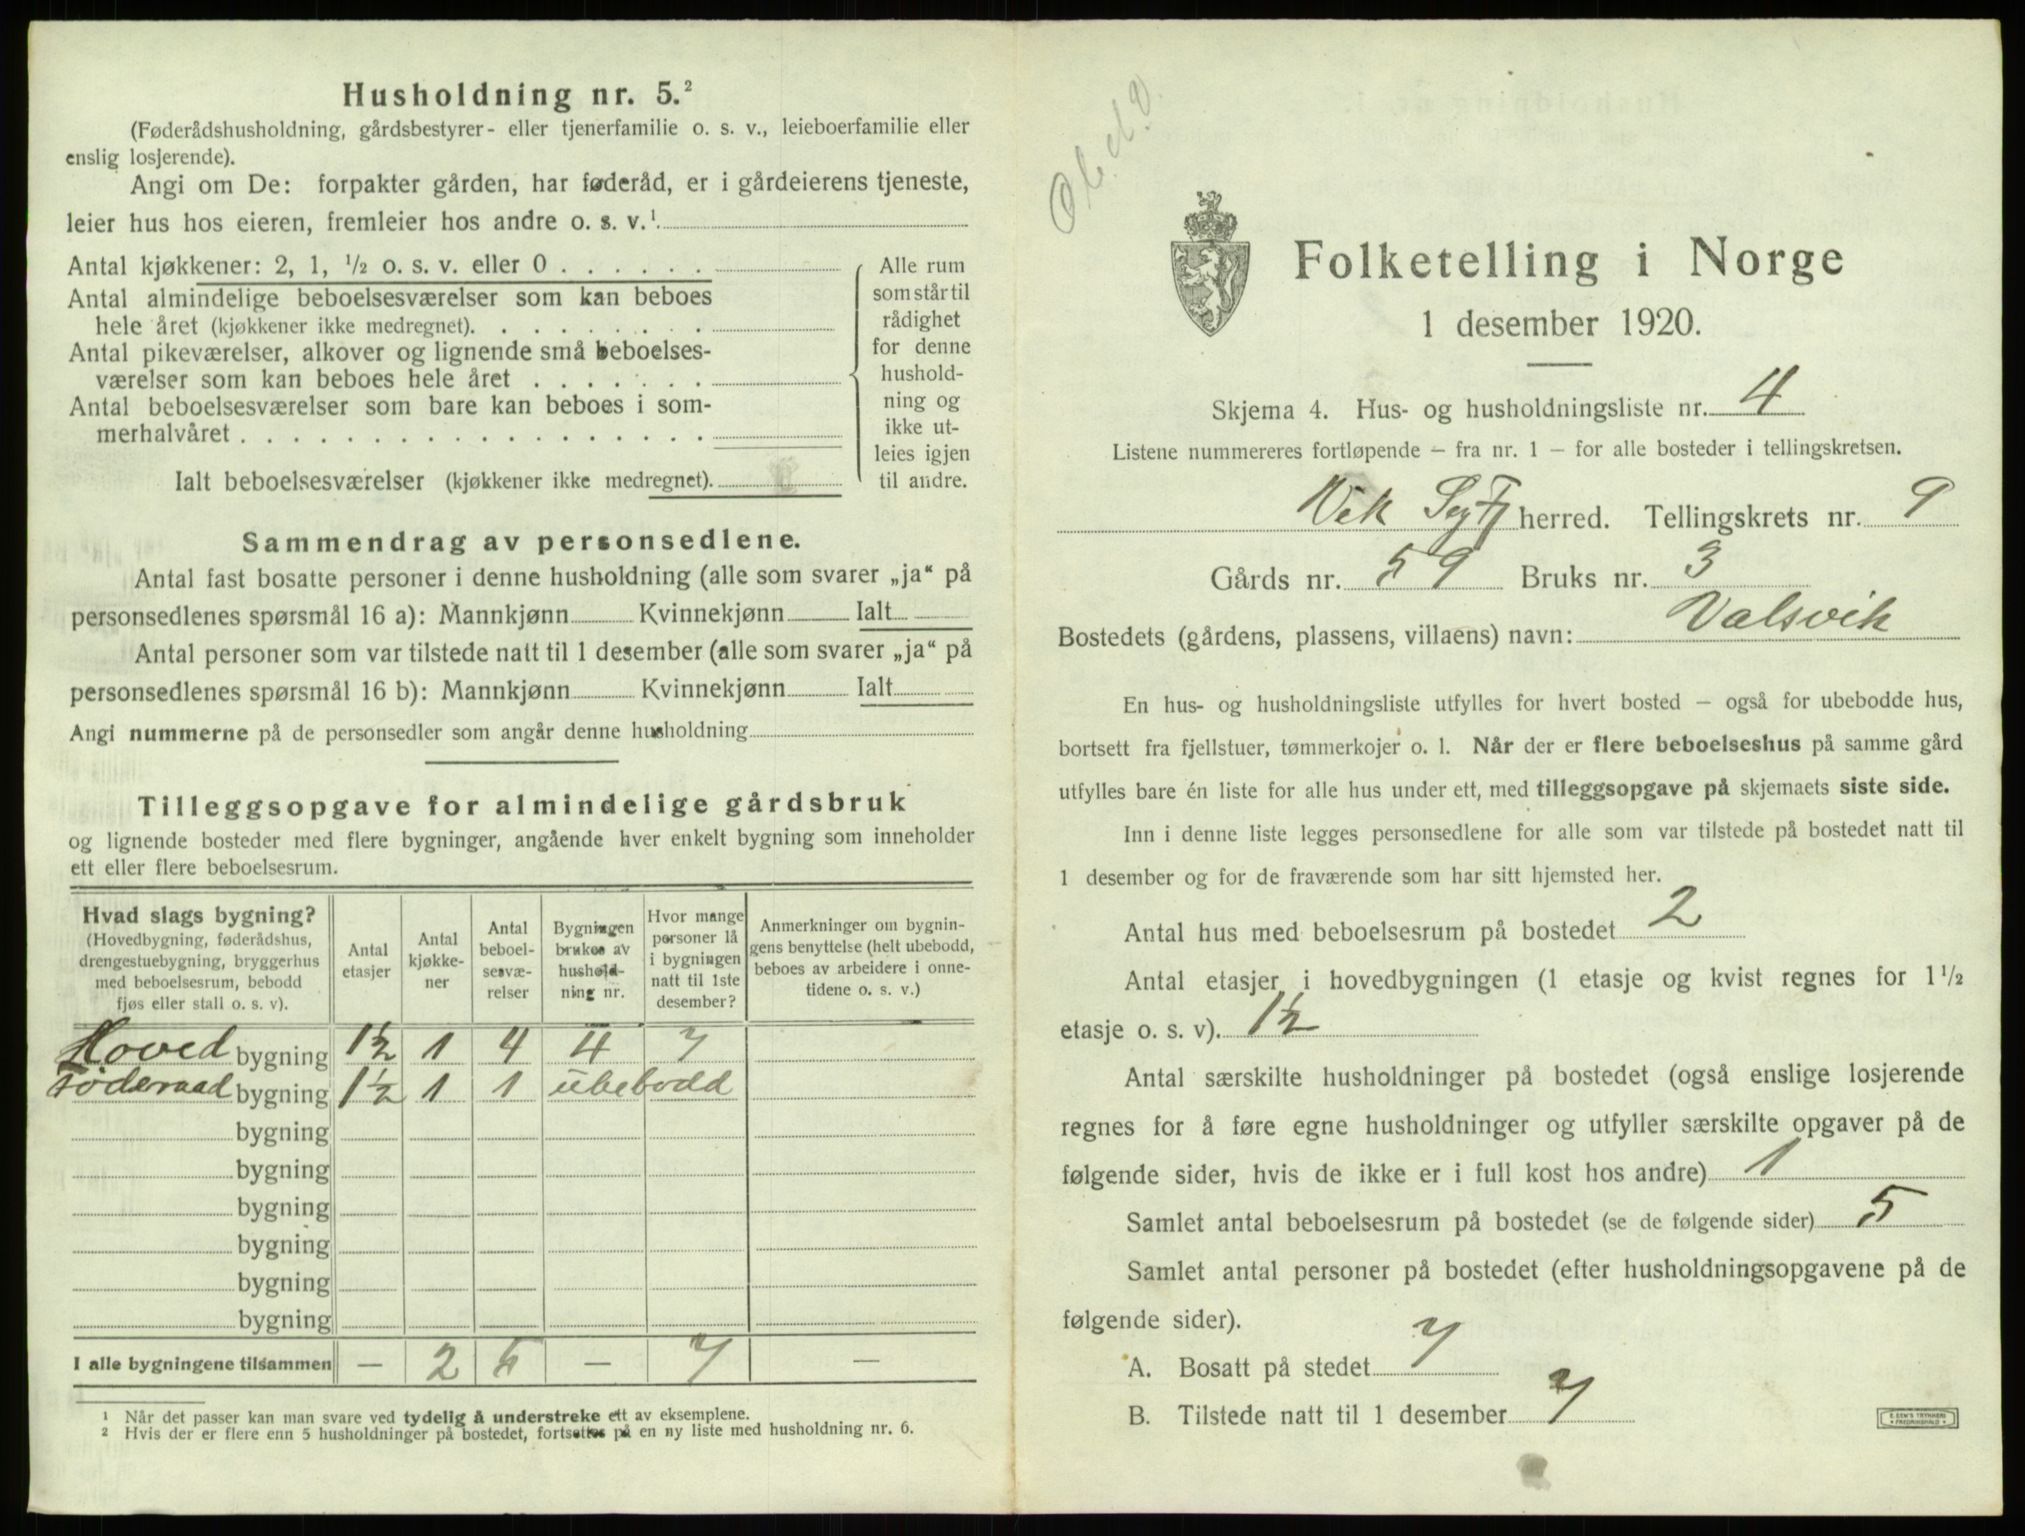 Husholdning nr. 5.²
(Føderådshusholdning, gårdsbestyrer- eller tjenerfamilie o. s. v., leieboerfamilie eller
enslig losjerende).
Angi om De: forpakter gården, har føderåd, er i gårdeierens tjeneste,
leier hus hos eieren, fremleier hos andre o. s. v.¹
Antal kjøkkener: 2, 1, ½ o. s. v. eller 0
Antal almindelige beboelsesværelser som kan beboes
hele året (kjøkkener ikke medregnet).
Antal pikeværelser, alkover og lignende små beboelses-
værelser som kan beboes hele året
Antal beboelsesværelser som bare kan beboes i som-
merhalvåret
Ialt beboelsesværelser (kjøkkener ikke medregnet).
Alle rum
som står til
rådighet
for denne
hushold-
ning og
ikke ut-
leies igjen
til andre.
Sammendrag av personsedlene.
Antal fast bosatte personer i denne husholdning (alle som svarer „ja“ på
personsedlenes spørsmål 16 a): Mannkjønn Kvinnekjønn Ialt
Antal personer som var tilstede natt til 1 desember (alle som svarer „ja“ på
personsedlenes spørsmål 16 b): Mannkjønn Kvinnekjønn Ialt
Angi nummerne på de personsedler som angår denne husholdning
Tilleggsopgave for almindelige gårdsbruk
og lignende bosteder med flere bygninger, angående hver enkelt bygning som inneholder
ett eller flere beboelsesrum.
Hvad slags bygning?
(Hovedbygning, føderådshus,
drengestuebygning, bryggerhus
med beboelsesrum, bebodd
fjøs eller stall o. s. v).
Antal
etasjer
Antal
kjøkke-
ner
Antal
beboel-
sesvæ-
relser
Bygningen
brukes av
hushold-
ning nr.
Hvor mange
personer lå
i bygningen
natt til 1ste
desember?
Anmerkninger om bygnin-
gens benyttelse (helt ubebodd,
beboes av arbeidere i onne-
tidene o. s. v.)
Hoved bygning 1½ 1 4 4 7
Føderaad bygning 1½ 1 1 ubebodd
bygning
bygning
bygning
bygning
bygning
bygning
I alle bygningene tilsammen — 2 5 — 7 —
¹ Når det passer kan man svare ved tydelig å understreke ett av eksemplene.
² Hvis der er flere enn 5 husholdninger på bostedet, fortsettes på en ny liste med husholdning nr. 6.
Folketelling i Norge
1 desember 1920.
Skjema 4. Hus- og husholdningsliste nr. 4
Listene nummereres fortløpende – fra nr. 1 – for alle bosteder i tellingskretsen.
Vik herred. Tellingskrets nr. 9
Gårds nr. 59 Bruks nr. 3
Bostedets (gårdens, plassens, villaens) navn: Valsvik
En hus- og husholdningsliste utfylles for hvert bosted – også for ubebodde hus,
bortsett fra fjellstuer, tømmerkojer o. l. Når der er flere beboelseshus på samme gård
utfylles bare én liste for alle hus under ett, med tilleggsopgave på skjemaets siste side.
Inn i denne liste legges personsedlene for alle som var tilstede på bostedet natt til
1 desember og for de fraværende som har sitt hjemsted her.
Antal hus med beboelsesrum på bostedet 2
Antal etasjer i hovedbygningen (1 etasje og kvist regnes for 1½
etasje o. s. v). 1½
Antal særskilte husholdninger på bostedet (også enslige losjerende
regnes for å føre egne husholdninger og utfyller særskilte opgaver på de
følgende sider, hvis de ikke er i full kost hos andre) 1
Samlet antal beboelsesrum på bostedet (se de følgende sider) 5
Samlet antal personer på bostedet (efter husholdningsopgavene på de
følgende sider).
A. Bosatt på stedet 7
B. Tilstede natt til 1 desember 7